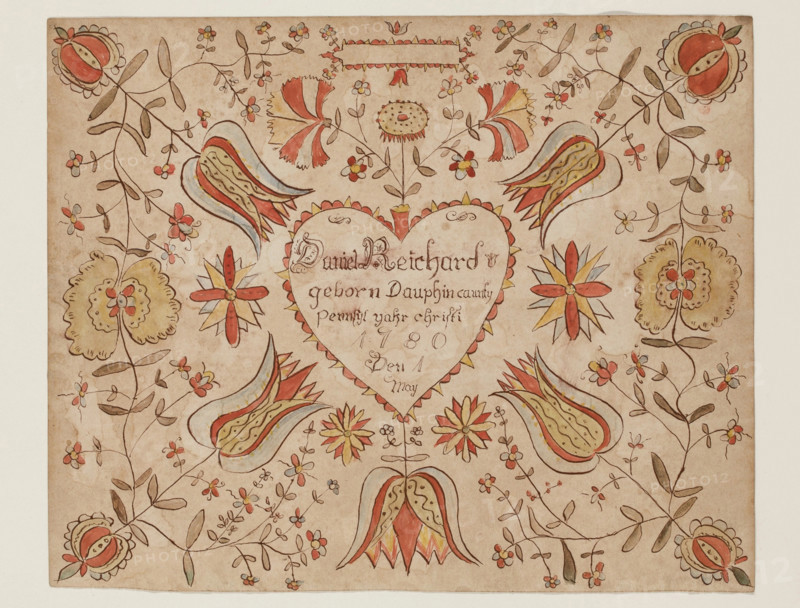 Daniel Reichard
geborn Dauphin caunty
Pennsyl yahr christi
1780
Den 1
May
PHOTO12